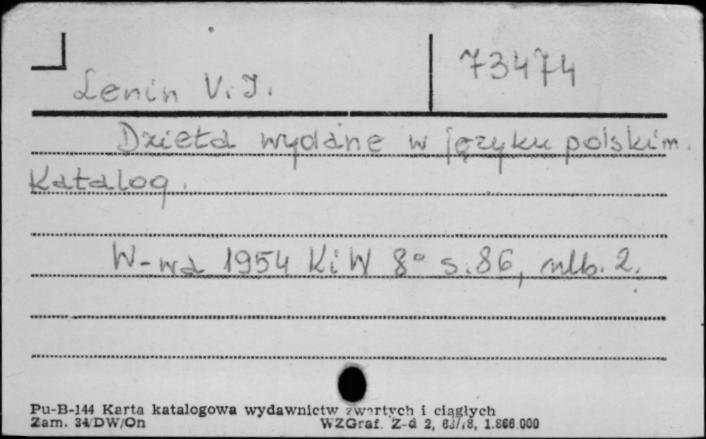 73474
Lenin V.I.
Dzieła wydane w języku polskim.
Katalog.
W-wa 1954 KiW 8° s.86, nlb. 2.
Pu-B-144 Karta katalogowa wydawnictw zwartych i ciągłych
Zam. 34/DW/On WZGraf. Z-d 2, 1.866.000